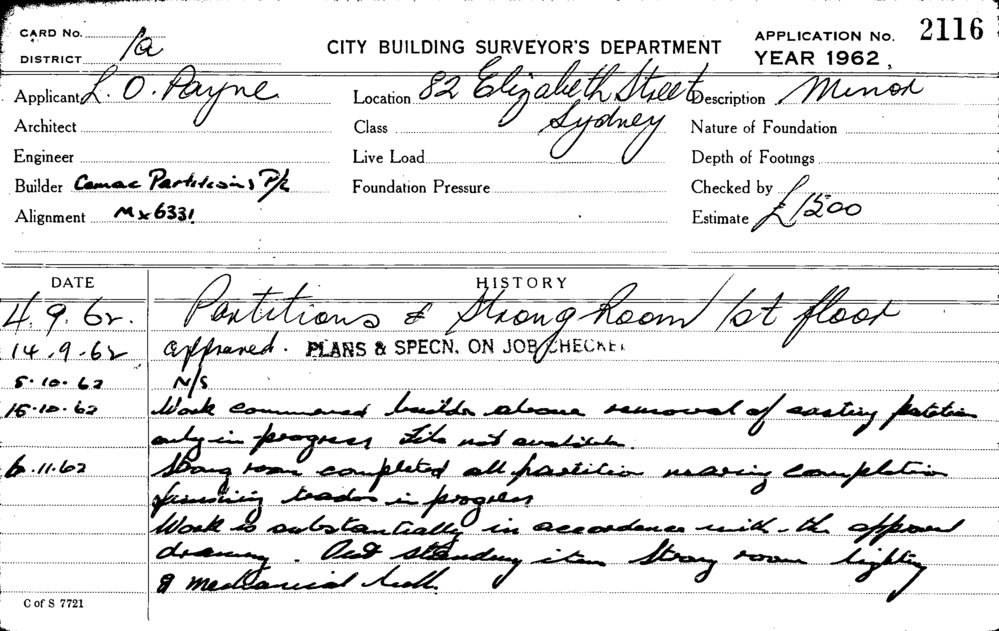 CARD No.
DISTRICT 1a
CITY BUILDING SURVEYOR'S DEPARTMENT
APPLICATION No. 2116
YEAR 1962
Applicant L. O. Payne
Location 82 Elizabeth Street
Sydney
Description Minor
Architect
Class
Nature of Foundation
Engineer
Live Load
Depth of Footings
Builder Comac Partitions P/L
Foundation Pressure
Checked by
Alignment Mx6331
Estimate £1500
DATE HISTORY
4.9.62. Partitions & Strong Room 1st floor
14.9.62 approved. PLANS & SPECN. ON JOB CHECKED
5.10.62 N/S
15.10.62 Work commenced builder above removal of existing partition
only in progress File not available.
6.11.62 Strong room completed all partition nearing completion
finishing trades in progress
Work is substantially in accordance with the approved
drawing. Out standing item Strong room lighting
& mechanical
C of S 7721